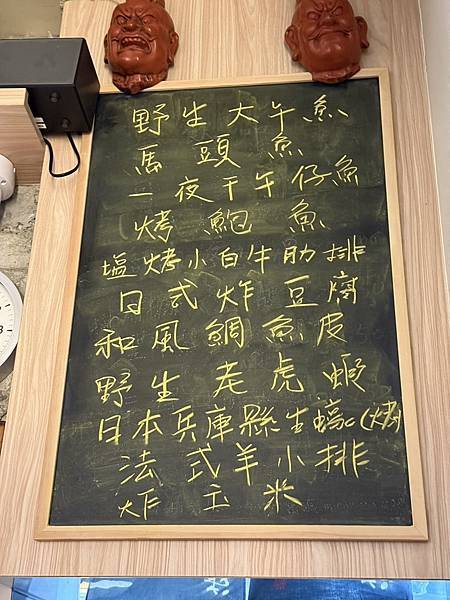 野生大午魚
馬頭魚
一夜干午仔魚
烤鮑魚
塩烤小白牛肋排
日式炸豆腐
和風鯛魚皮
野生老虎蝦
日本兵庫縣生蠔(烤)
法式羊小排
炸玉米